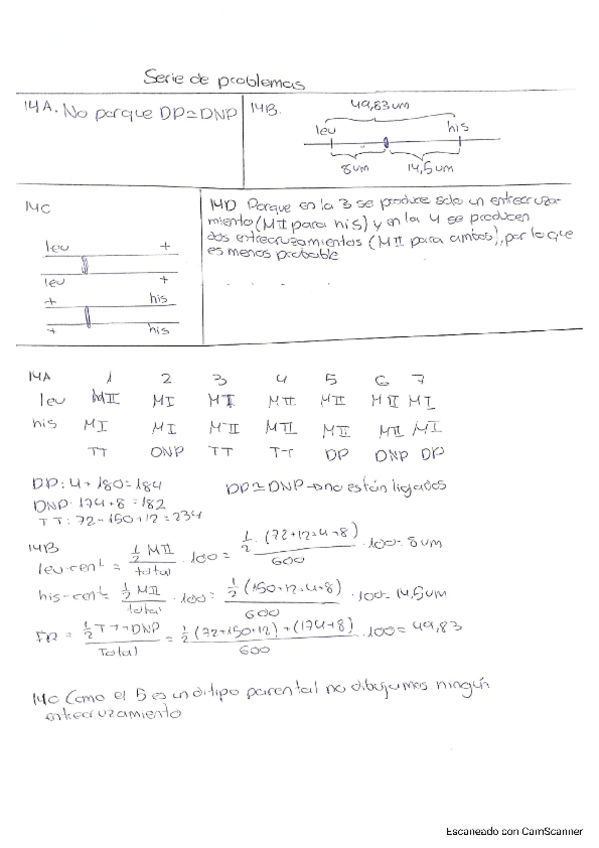 Serie de problemas
14A. No porque DP≃DNP
14B.
49,83um
leu his
8um 14,5um
14C
leu +
leu +
+ his
+ his
14D Porque en la 3 se produce solo un entrecruza-
miento (MII para his) y en la 4 se producen
dos entrecruzamientos (MII para ambos), por lo que
es menos probable
14A 1 2 3 4 5 6 7
leu MII MI MI MII MII MII MI
his MI MI MII MII MII MII MI
TT DNP TT TT DP DNP DP
DP: 4+180=184
DP≃DNP→no están ligados
DNP: 174+8=182
TT: 72+150+12=234
14B
leu-cent = 1/2 MII / total · 100 = 1/2 · (72+12+4+8) / 600 · 100= 8um
his-cent= 1/2 MII / total · 100= 1/2 (150+12+4+8) / 600 · 100= 14,5um
FR = 1/2 TT+DNP / Total = 1/2 (72+150+12) + (174+8) / 600 · 100= 49,83
14C Como el 5 es un ditipo parental no dibujamos ningún
entrecruzamiento
Escaneado con CamScanner